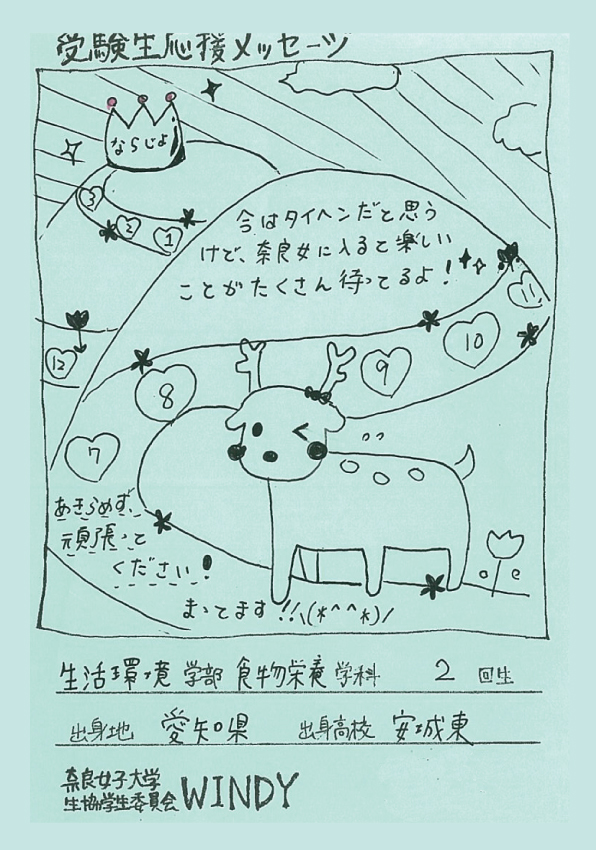 受験生応援メッセージ
ならじょ
3
2
1
今はタイヘンだと思う
けど、奈良女に入ると楽しい
ことがたくさん待ってるよ!
11
10
12
9
8
7
あきらめず、
頑張って
ください!
まってます!!\(*^^*)/
生活環境 学部 食物栄養 学科 2 回生
出身地 愛知県 出身高校 安城東
奈良女子大学
生協学生委員会 WINDY